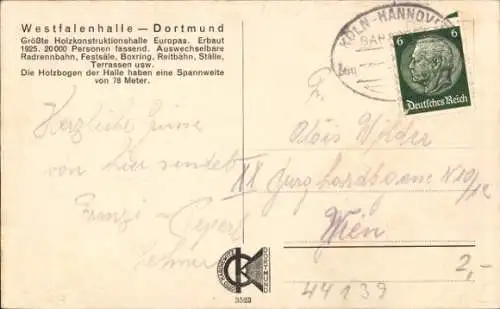 Westfalenhalle — Dortmund
Größte Holzkonstruktionshalle Europas. Erbaut
1925. 20000 Personen fassend. Auswechselbare
Radrennbahn, Festsäle, Boxring, Reitbahn, Ställe,
Terrassen usw.
Die Holzbogen der Halle haben eine Spannweite
von 78 Meter.
Herzliche Grüsse
von hier sendet
Franzi
KÖLN-HANNOVER
BAHNPOST
Zug
6 6
Deutsches Reich
Alois
XX Burghardtgasse N 19/12
Wien
2,-
44139
DORTMUND
3523